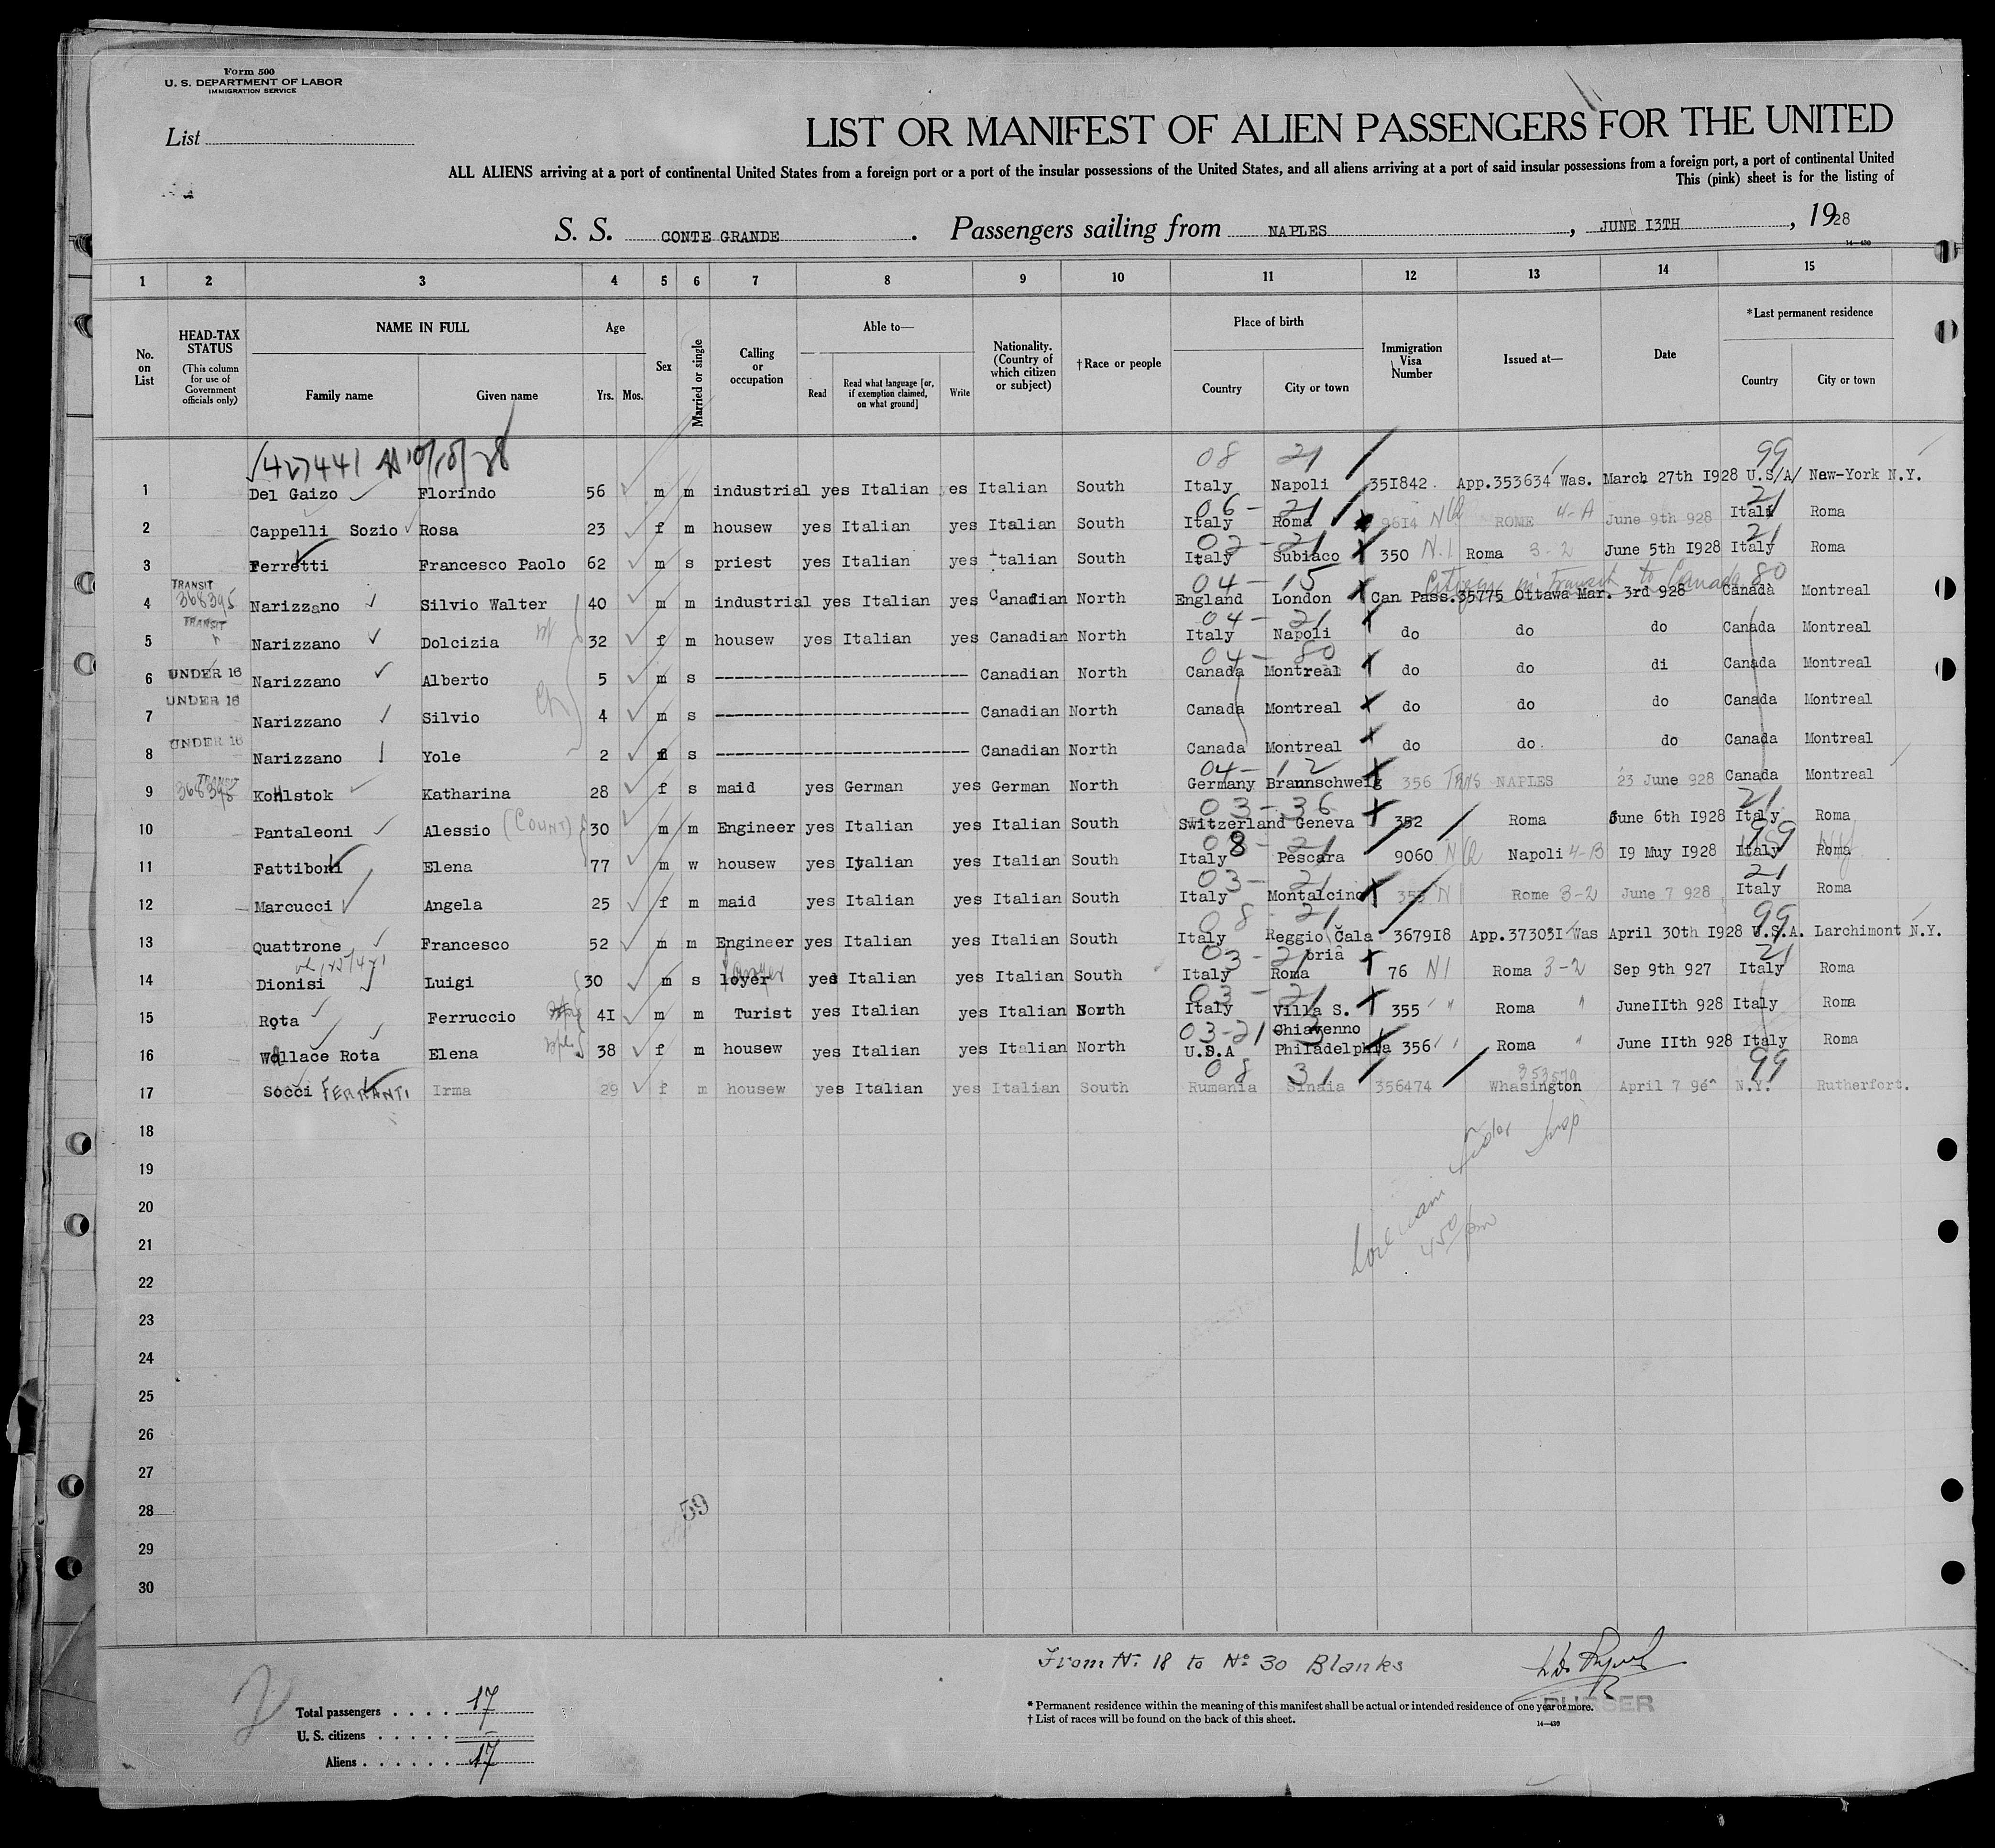 Form 500
U. S. DEPARTMENT OF LABOR
IMMIGRATION SERVICE
List
LIST OR MANIFEST OF ALIEN PASSENGERS FOR THE UNITED
ALL ALIENS arriving at a port of continental United States from a foreign port or a port of the insular possessions of the United States, and all aliens arriving at a port of said insular possessions from a foreign port, a port of continental United
This (pink) sheet is for the listing of
S. S. CONTE GRANDE. Passengers sailing from NAPLES, JUNE I3TH, 1928
14—430
1 2 3 4 5 6 7 8 9 10 11 12 13 14 15
No. on List
HEAD-TAX STATUS (This column for use of Government officials only)
NAME IN FULL Family name Given name
Age Yrs. Mos.
Sex
Married or single
Calling or occupation
Able to— Read Read what language [or, if exemption claimed, on what ground] Write
Nationality. (Country of which citizen or subject)
†Race or people
Place of birth Country City or town
Immigration Visa Number
Issued at—
Date
*Last permanent residence Country City or town
08 21 99
1 Del Gaizo Florindo 56 m m industrial yes Italian es Italian South Italy Napoli 35I842. App.353634 Was. March 27th I928 U.S/A/ New-York N.Y.
06 - 21 21
2 Cappelli Sozio Rosa 23 f m housew yes Italian yes Italian South Italy Roma 96I4 NQ ROME 4-A June 9th 928 Itali Roma
02 - 21 21
3 Ferretti Francesco Paolo 62 m s priest yes Italian yes Italian South Italy Subiaco 350 N.1 Roma 3-2 June 5th I928 Italy Roma
TRANSIT 04 - 15 Citizen in Transit to Canada 80
4 368395 Narizzano Silvio Walter 40 m m industrial yes Italian yes Canadian North England London Can Pass.35775 Ottawa Mar. 3rd 928 Canada Montreal
TRANSIT 04 - 21
5 Narizzano Dolcizia 32 f m housew yes Italian yes Canadian North Italy Napoli do do do Canada Montreal
04 - 80
6 UNDER 16 Narizzano Alberto 5 m s Canadian North Canada Montreal do do di Canada Montreal
7 UNDER 16 Narizzano Silvio 4 m s Canadian North Canada Montreal do do do Canada Montreal
8 UNDER 16 Narizzano Yole 2 f s Canadian North Canada Montreal do do. do Canada Montreal
TRANSIT 04 - 12
9 368395 Kohlstok Katharina 28 f s maid yes German yes German North Germany Braunschweig 356 TRNS NAPLES 23 June 928 Canada Montreal
03 - 36 21
10 Pantaleoni Alessio (COUNT) 30 m m Engineer yes Italian yes Italian South Switzerland Geneva 352 Roma June 6th I928 Italy Roma
08 - 21 99
11 Fattiboni Elena 77 m w housew yes Italian yes Italian South Italy Pescara 9060 NQ Napoli 4-B I9 Muy I928 Italy Roma
03 - 21 21
12 Marcucci Angela 25 f m maid yes Italian yes Italian South Italy Montalcino 353 N1 Rome 3-2 June 7 928 Italy Roma
08 - 21 99
13 Quattrone Francesco 52 m m Engineer yes Italian yes Italian South Italy Reggio Cala bria 3679I8 App.37305I Was April 30th I928 U.S.A. Larchimont N.Y.
03 - 21 21
14 Dionisi Luigi 30 m s loyer yes Italian yes Italian South Italy Roma 76 N1 Roma 3-2 Sep 9th 927 Italy Roma
03 - 21
15 Rota Ferruccio 4I m m Turist yes Italian yes Italian North Italy Villa S. Chiavenno 355 " Roma " JuneIIth 928 Italy Roma
03-21 3
16 Wallace Rota Elena 38 f m housew yes Italian yes Italian North U.S.A Philadelphia 356 Roma " June IIth 928 Italy Roma
08 31 353579 99
17 Socci FERRANTI Irma 29 f m housew yes Italian yes Italian South Rumania Sinaia 356474 Whasington April 7 N.Y. Rutherfort.
18
19
20
21
22
23
24
25
26
27
28
29
30
59
From N: 18 to No 30 Blanks
PURSER
2
Total passengers . . . . 17
U. S. citizens . . . . . –
Aliens . . . . . . 17
* Permanent residence within the meaning of this manifest shall be actual or intended residence of one year or more.
† List of races will be found on the back of this sheet.
14—430